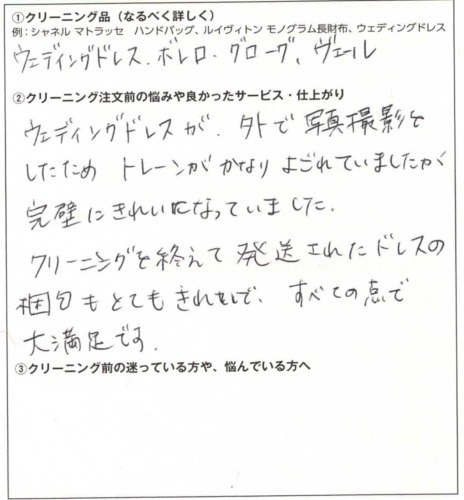 ①クリーニング品（なるべく詳しく）
例：シャネル マトラッセ　ハンドバッグ、ルイヴィトン モノグラム長財布、ウェディングドレス
ウェディングドレス、ボレロ、グローブ、ヴェール
②クリーニング注文前の悩みや良かったサービス・仕上がり
ウェディングドレスが、外で写真撮影を
したため トレーンがかなりよごれていましたが
完璧にきれいになっていました。
クリーニングを終えて発送されたドレスの
梱包もとてもきれいで、すべての点で
大満足です。
③クリーニング前の迷っている方や、悩んでいる方へ